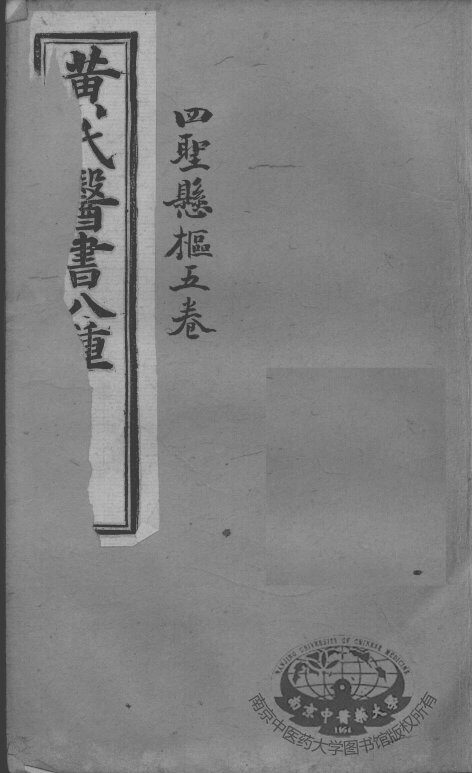 四聖懸樞五卷
黄氏醫書八種
NANJING UNIVERSITY OF CHINESE MEDICINE
南京中醫藥大學
1954
南京中医药大学图书馆版权所有